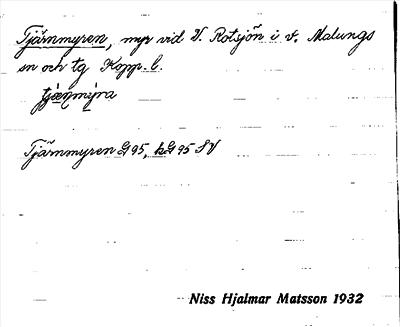 Tjärnmyren, myr vid V. Rotsjön i t. Malungs
sn och tg Kopp. l.
tjæɳmýra
Tjärnmyren G 95, hG 95 SV
Niss Hjalmar Matsson 1932